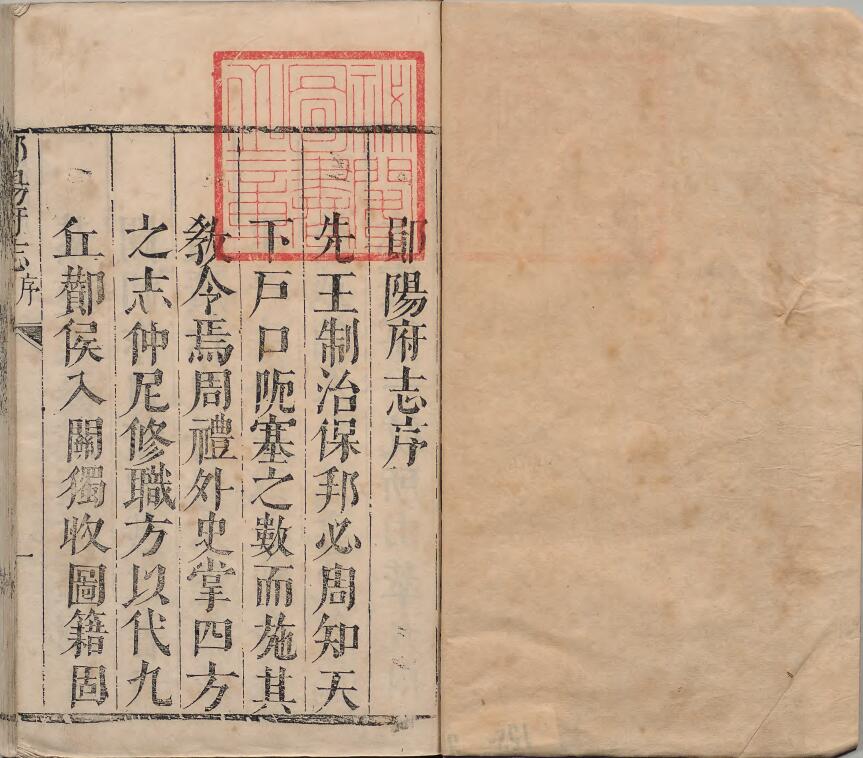 鄖陽府志序
先王制治保邦必周知天
下戶口阨塞之數而施其
教令焉周禮外史掌四方
之志仲尼修職方以代九
丘酇侯入關獨收圖籍固
鄖陽府志序
一